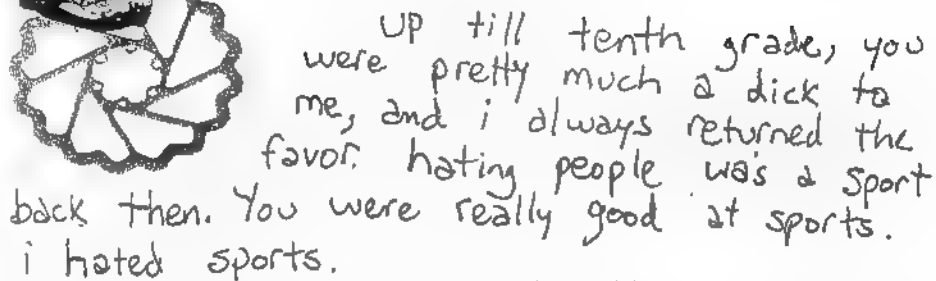 up till tenth grade, you
were pretty much a dick to
me, and i always returned the
favor. hating people was a sport
back then. You were really good at sports.
i hated sports.